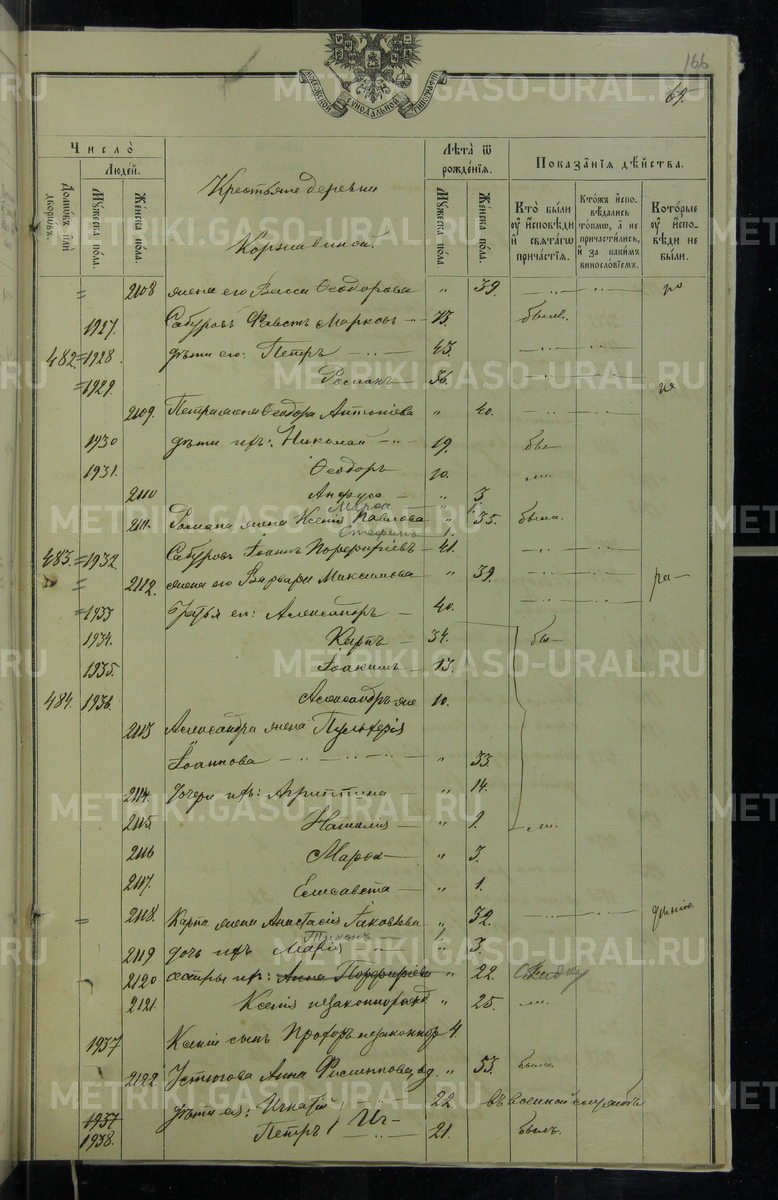 166
69.
МОСКОВСКОЙ СѴНОДАЛЬНОЙ ТИПОГРАФІИ
METRIKI.GASO-URAL.RU
Число̀
Людей.
Домѡвъ или дворѡвъ.
Мꙋжеска пола.
Женска пола.
Крестьяне деревни
Коржавиной.
Лѣта̀ ѿ рожденїѧ.
Мꙋжеска пола.
Женска пола.
Показанїѧ дѣйства.
Кто̀ были ᲂу҆ исповѣди и свѧтагѡ причастїѧ.
Ктожъ исповѣдались токмѡ, а не причастились, и за какимъ винословїемъ.
Которые ᲂу҆ исповѣди не были.
= 2108 жена его Васса Ѳеодорова " 39. — по
1927. Сабуровъ Фавстъ Марковъ 73. былъ.
482. = 1928. дѣти его: Петръ — 43. —
= 1929. Романъ — 36. —
2109. Петра жена Ѳеодора Антоніева " 40. — не
1930 дѣти ихъ: Николай — 19. бы—
1931. Ѳеодоръ 10.
2110 Анфуса — " 3.
Марѳа " 1.
2111. Романа жена Ксенія Павлова " 35. была.
Стефанъ 1.
483. = 1932. Сабуровъ Іоаннъ Порфирьевъ — 41. —
= 2112. жена его Варвара Максимова " 39. — ра—
= 1933 братья его: Александръ — 40. —
1934. Карпъ — 34. бы—
1935. Іоакимъ — 13.
484. 1936. Александръ же 10.
2113 Александра жена Пульхерія
Іоаннова — " 33.
2114. дочери ихъ: Агриппина — " 14.
2115. Наталія — " 9.
2116 Марѳа — " 3.
2117. Елисавета — " 1.
= 2118. Карпа жена Анастасія Іаковлева " 32. — дѣнію
Тихонъ 1.
2119 дочь ихъ Марія " 3.
2120 сестры ихъ: Анна Порфиріева " 22.
2121. Ксенія незаконнорожд " 25.
1937 Ксеніи сынъ Прохоръ незаконнор 4.
2122. Устюгова Анна Филиппова вд. " 53. была.
1937 дѣти ея: Игнатій — 22 въ военной службѣ
1938. Петръ 21. былъ.